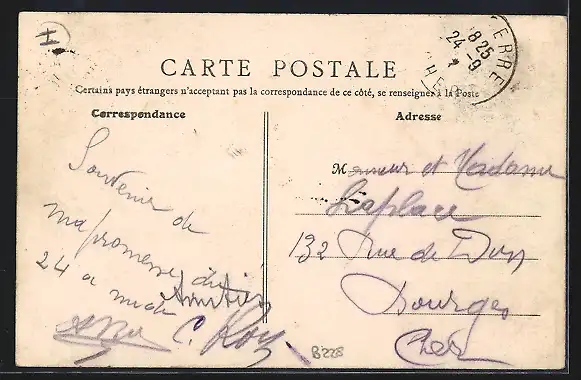 I
CARTE POSTALE
Certains pays étrangers n'acceptant pas la correspondance de ce côté, se renseigner à la Poste
Correspondance
Adresse
ERRE
8 25
24 -9
Souvenir de
ma promenade du
24 a midi
Amitiés
C. Roy
Monsieur et Madame
Laplace
132 Rue de Dun
Bourges
Cher
B228